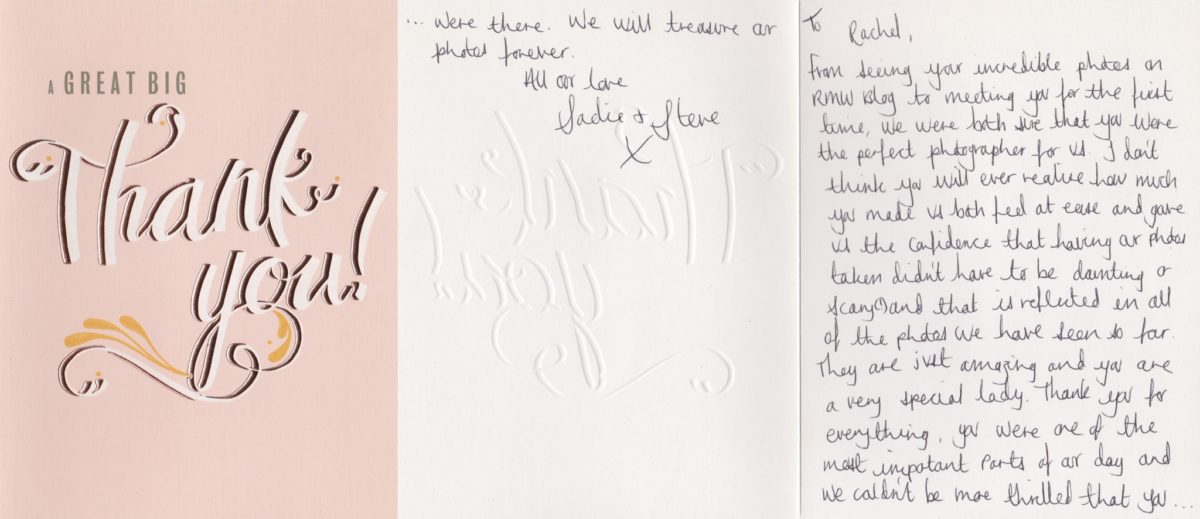 A GREAT BIG
Thank
you!
... were there. We will treasure our
photos forever.
All our love
Sadie & Steve
X
To
Rachel,
From seeing your incredible photos on
RMW Blog to meeting you for the first
time, we were both sure that you were
the perfect photographer for us. I don't
think you will ever realise how much
you made us both feel at ease and gave
us the confidence that having our photos
taken didn't have to be daunting or
scary(!) and that is reflected in all
of the photos we have seen so far.
They are just amazing and you are
a very special lady. Thank you for
everything, you were one of the
most important parts of our day and
we couldn't be more thrilled that you ...